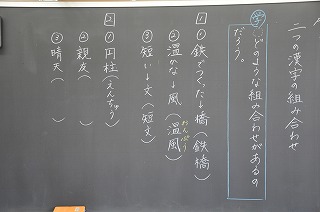 二つの漢字の組み合わせ
学
どのような組み合わせがあるの
だろう。
1
① 鉄でつくった↓橋(鉄橋)
② 温かな↓風(温風)
おんぷう
③ 短い↓文(短文)
2
① 円柱(えんちゅう)
② 親友(　　　)
③ 晴天(　　　)